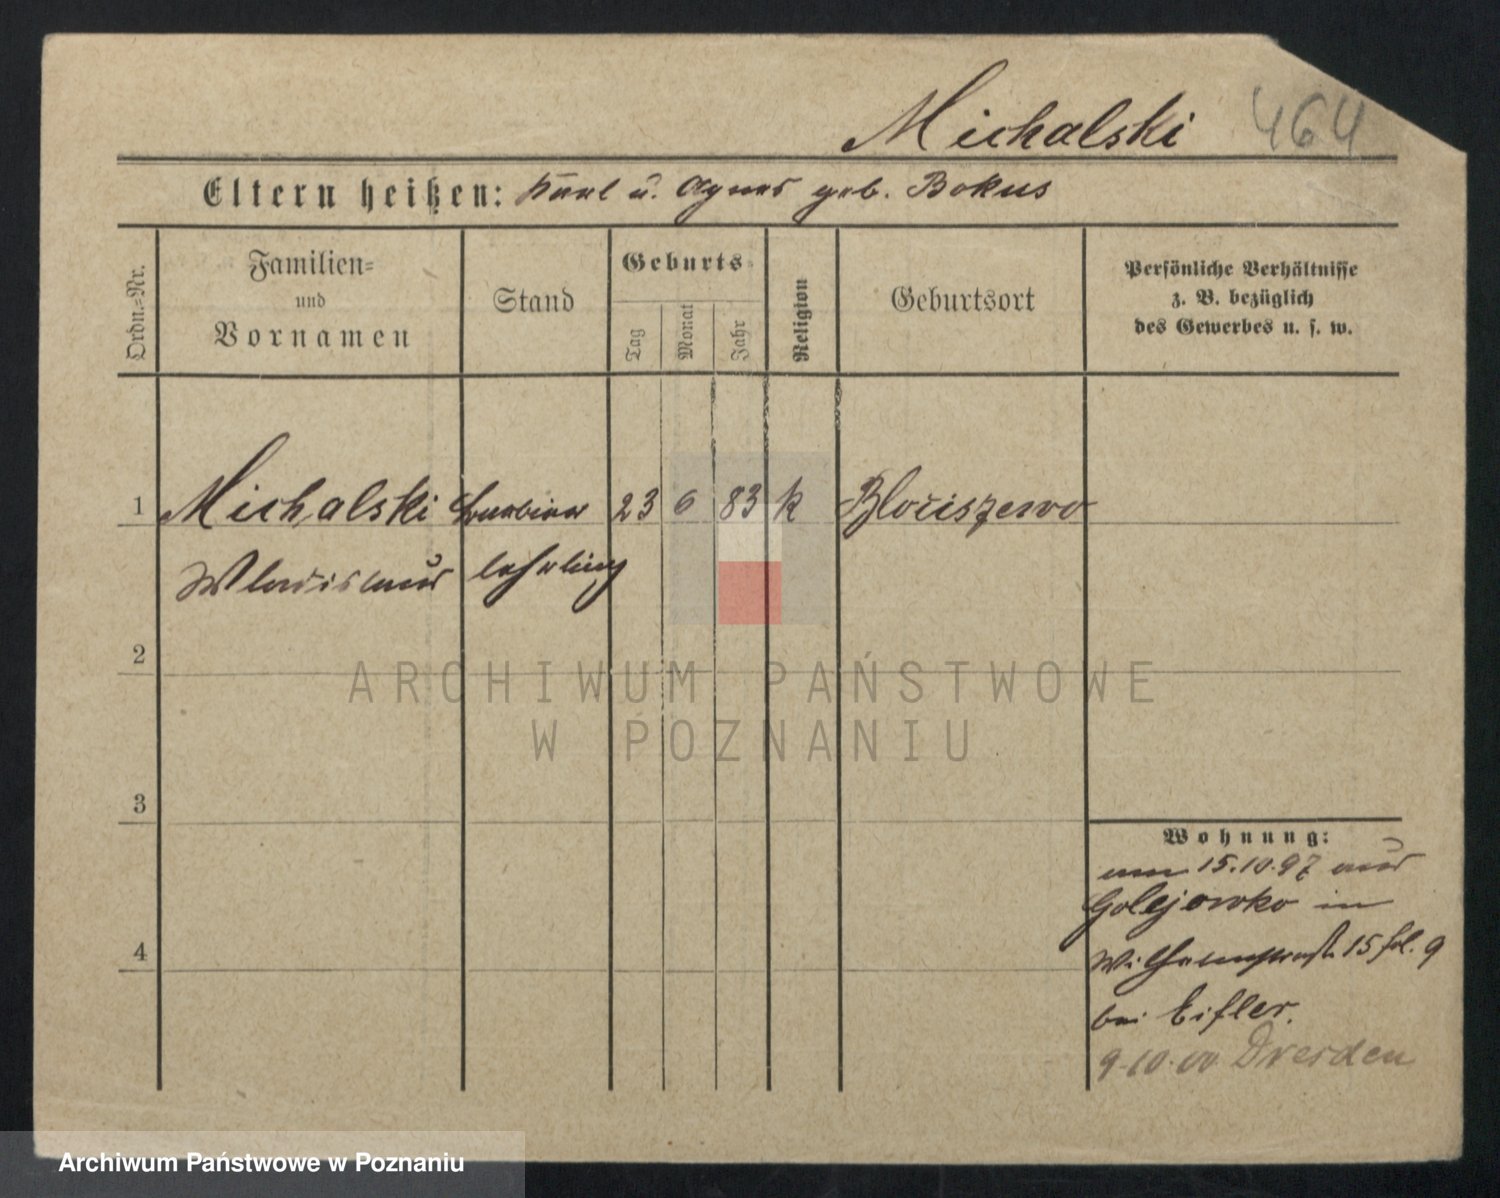 Michalski 464
Eltern heißen: Karl u. Agnes geb. Bokus
Ordn.-Nr.
Familien-
und
Vornamen
Stand
Geburts-
Tag
Monat
Jahr
Religion
Geburtsort
Persönliche Verhältnisse
z. B. bezüglich
des Gewerbes u. s. w.
1 Michalski Barbier 23 6 83 k Blociszewo
Wladislaus lehrling
2
ARCHIWUM PAŃSTWOWE
W POZNANIU
3
Wohnung:
am 15.10.97 aus
Golejewko in
Wilhelmstraße 15 fol. 9
4
bei Eifler.
9.10.00 Dresden
Archiwum Państwowe w Poznaniu